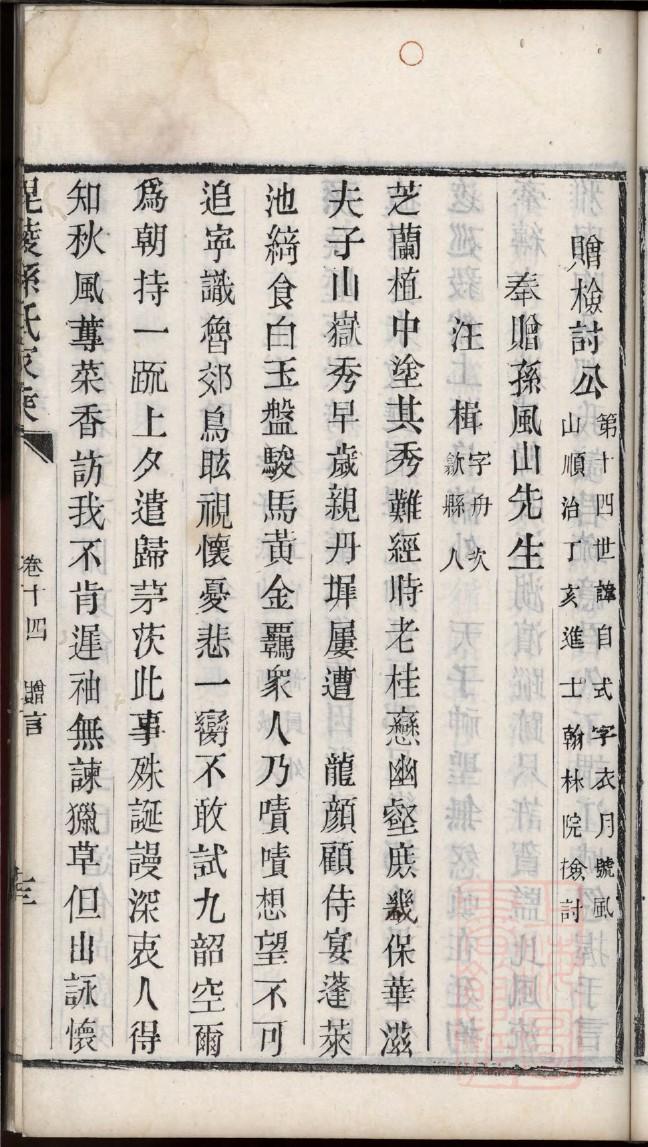 贈檢討公第十四世諱自式字衣月號風
山順治丁亥進士翰林院檢討
奉贈孫風山先生
汪楫字舟次
歙縣人
芝蘭植中塗其秀難經時老桂戀幽壑庶幾保華滋
夫子山嶽秀早歲親丹墀屢遭龍顏顧侍宴蓬萊
池綺食白玉盤駿馬黃金羈衆人乃嘖嘖想望不可
追寧識魯郊鳥眩視懷憂悲一臠不敢試九韶空爾
爲朝持一疏上夕遣歸茅茨此事殊誕謾深衷人得
知秋風蓴菜香訪我不肯遲袖無諫獵草但出詠懷
毘陵孫氏家乘
卷十四 贈言